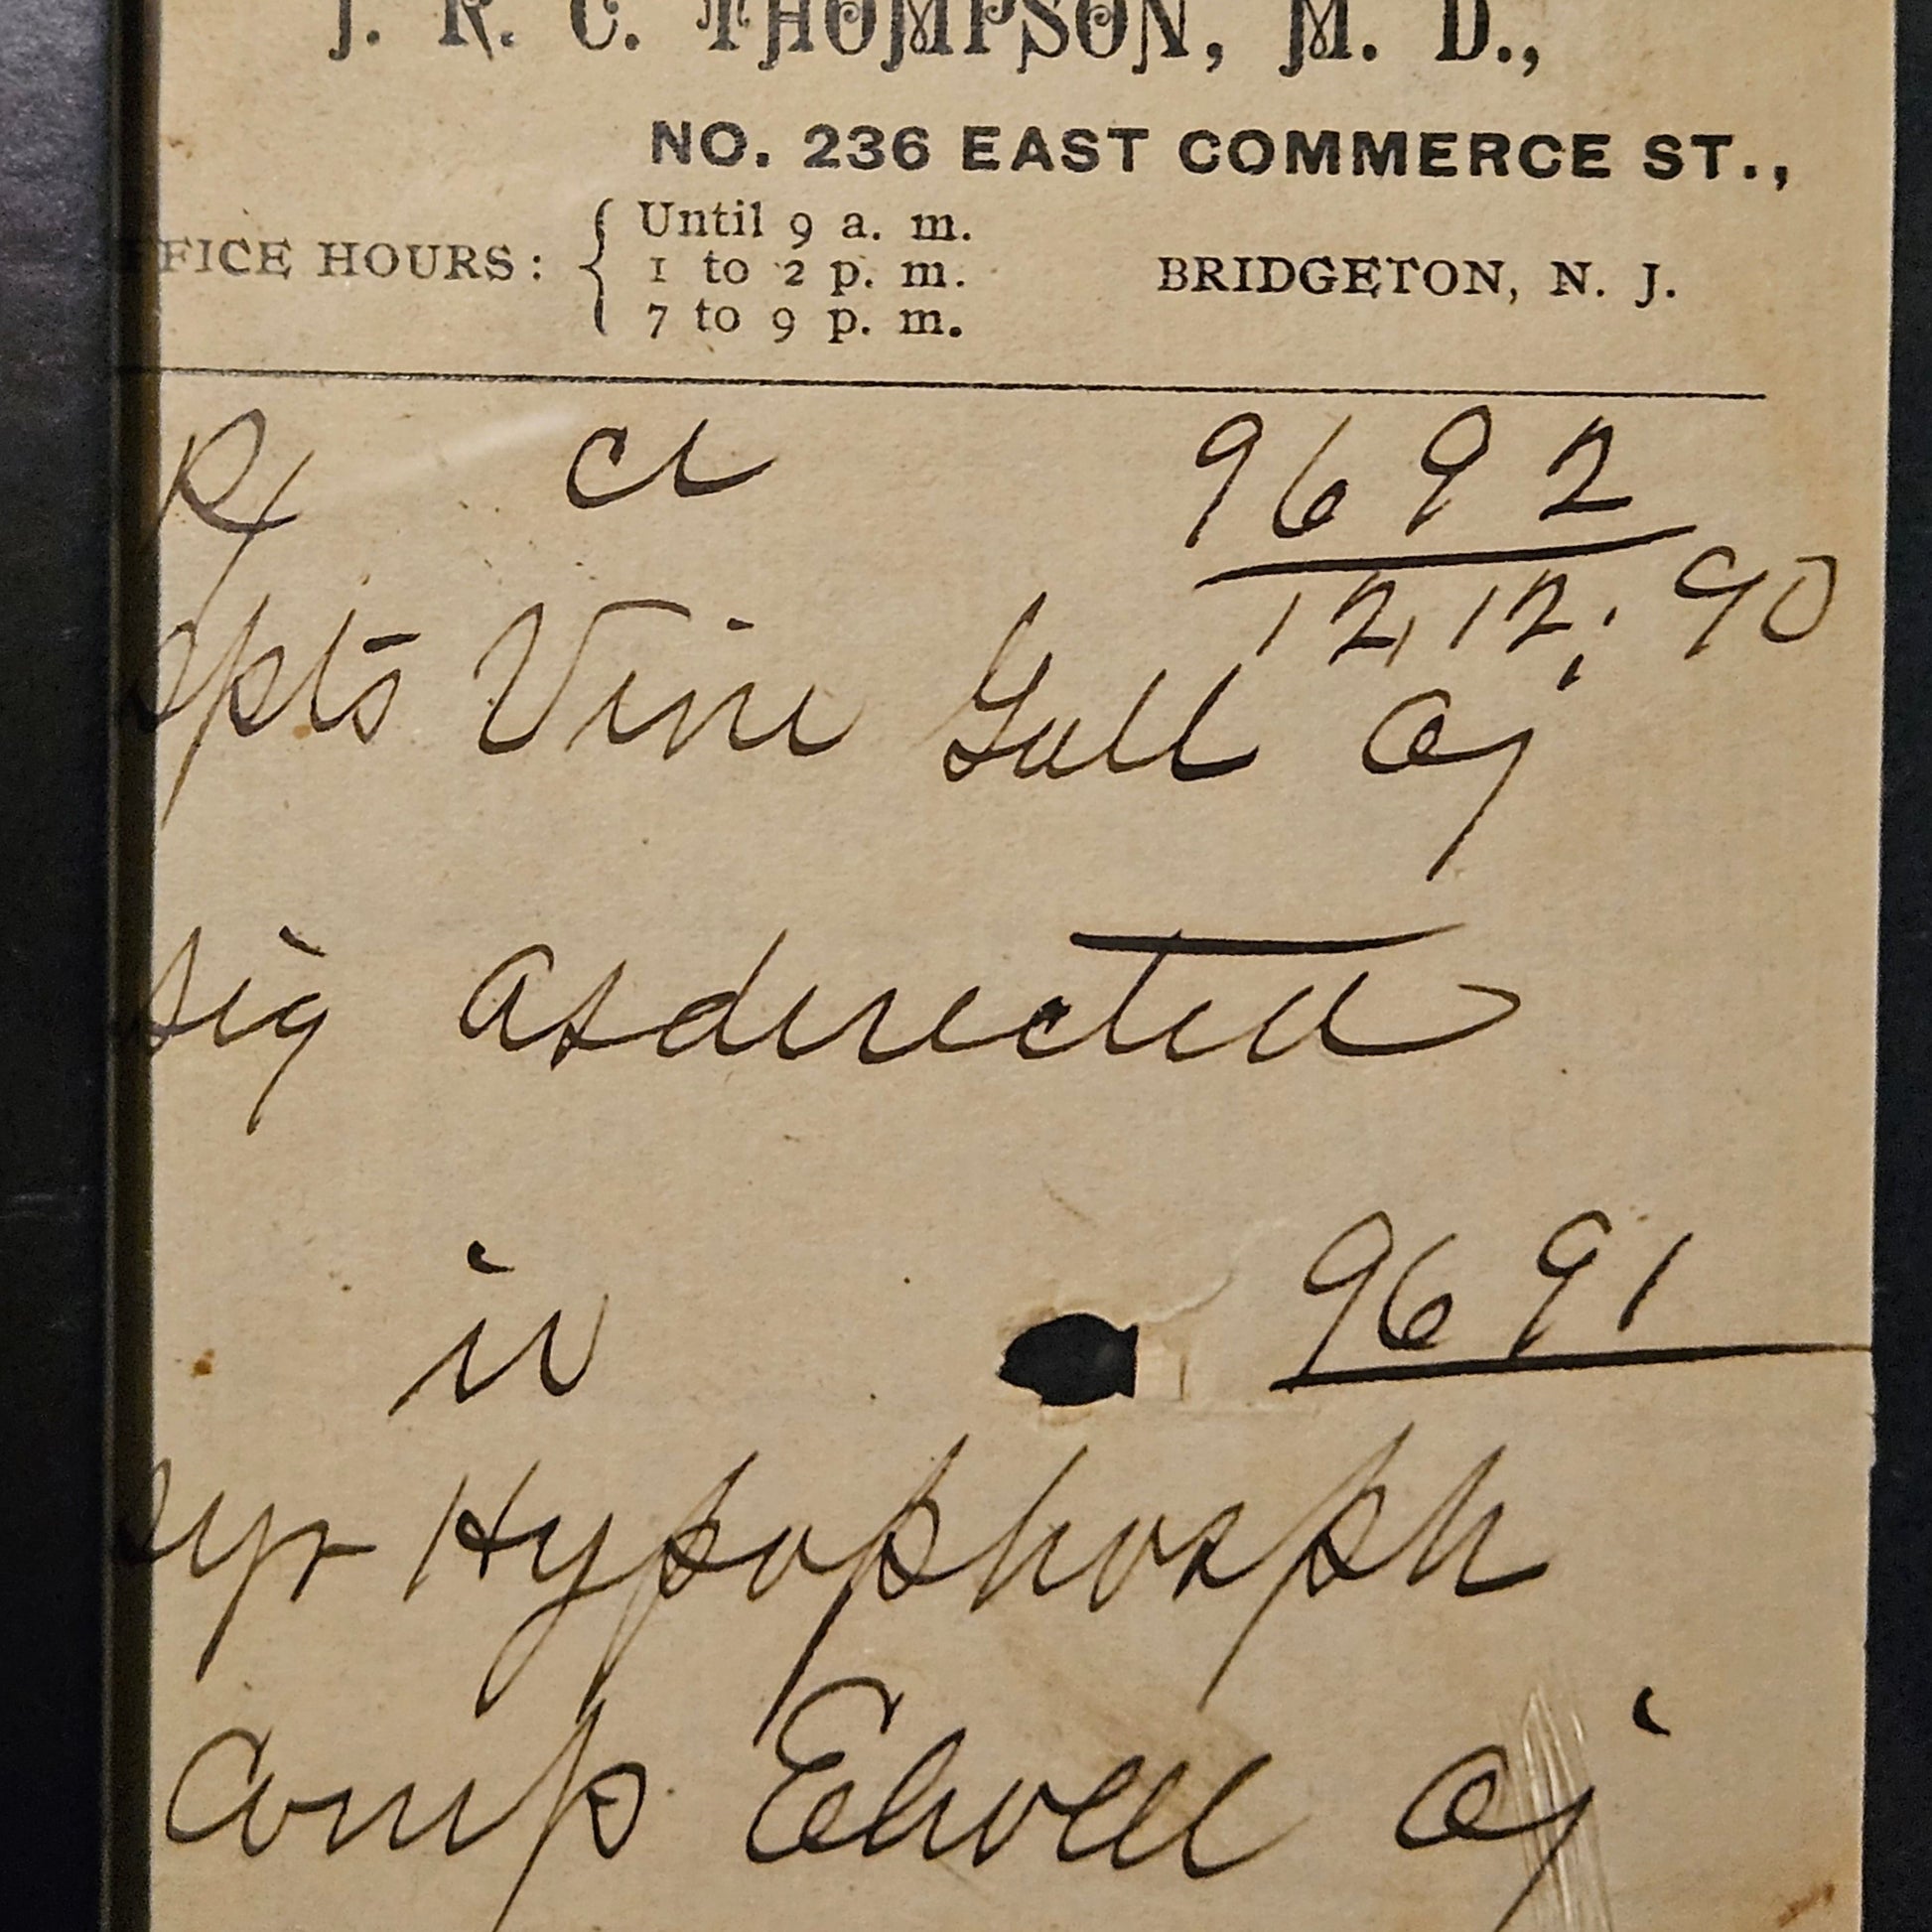 J. R. C. THOMPSON, M. D.,
NO. 236 EAST COMMERCE ST.,
FICE HOURS: { Until 9 a. m.
1 to 2 p. m.
7 to 9 p. m.
BRIDGETON, N. J.
Rx 9692
12, 12, 90
Vini Gall Oj
Sig As directed
9691
Syr Hypophosph
Comp Elwell Oj